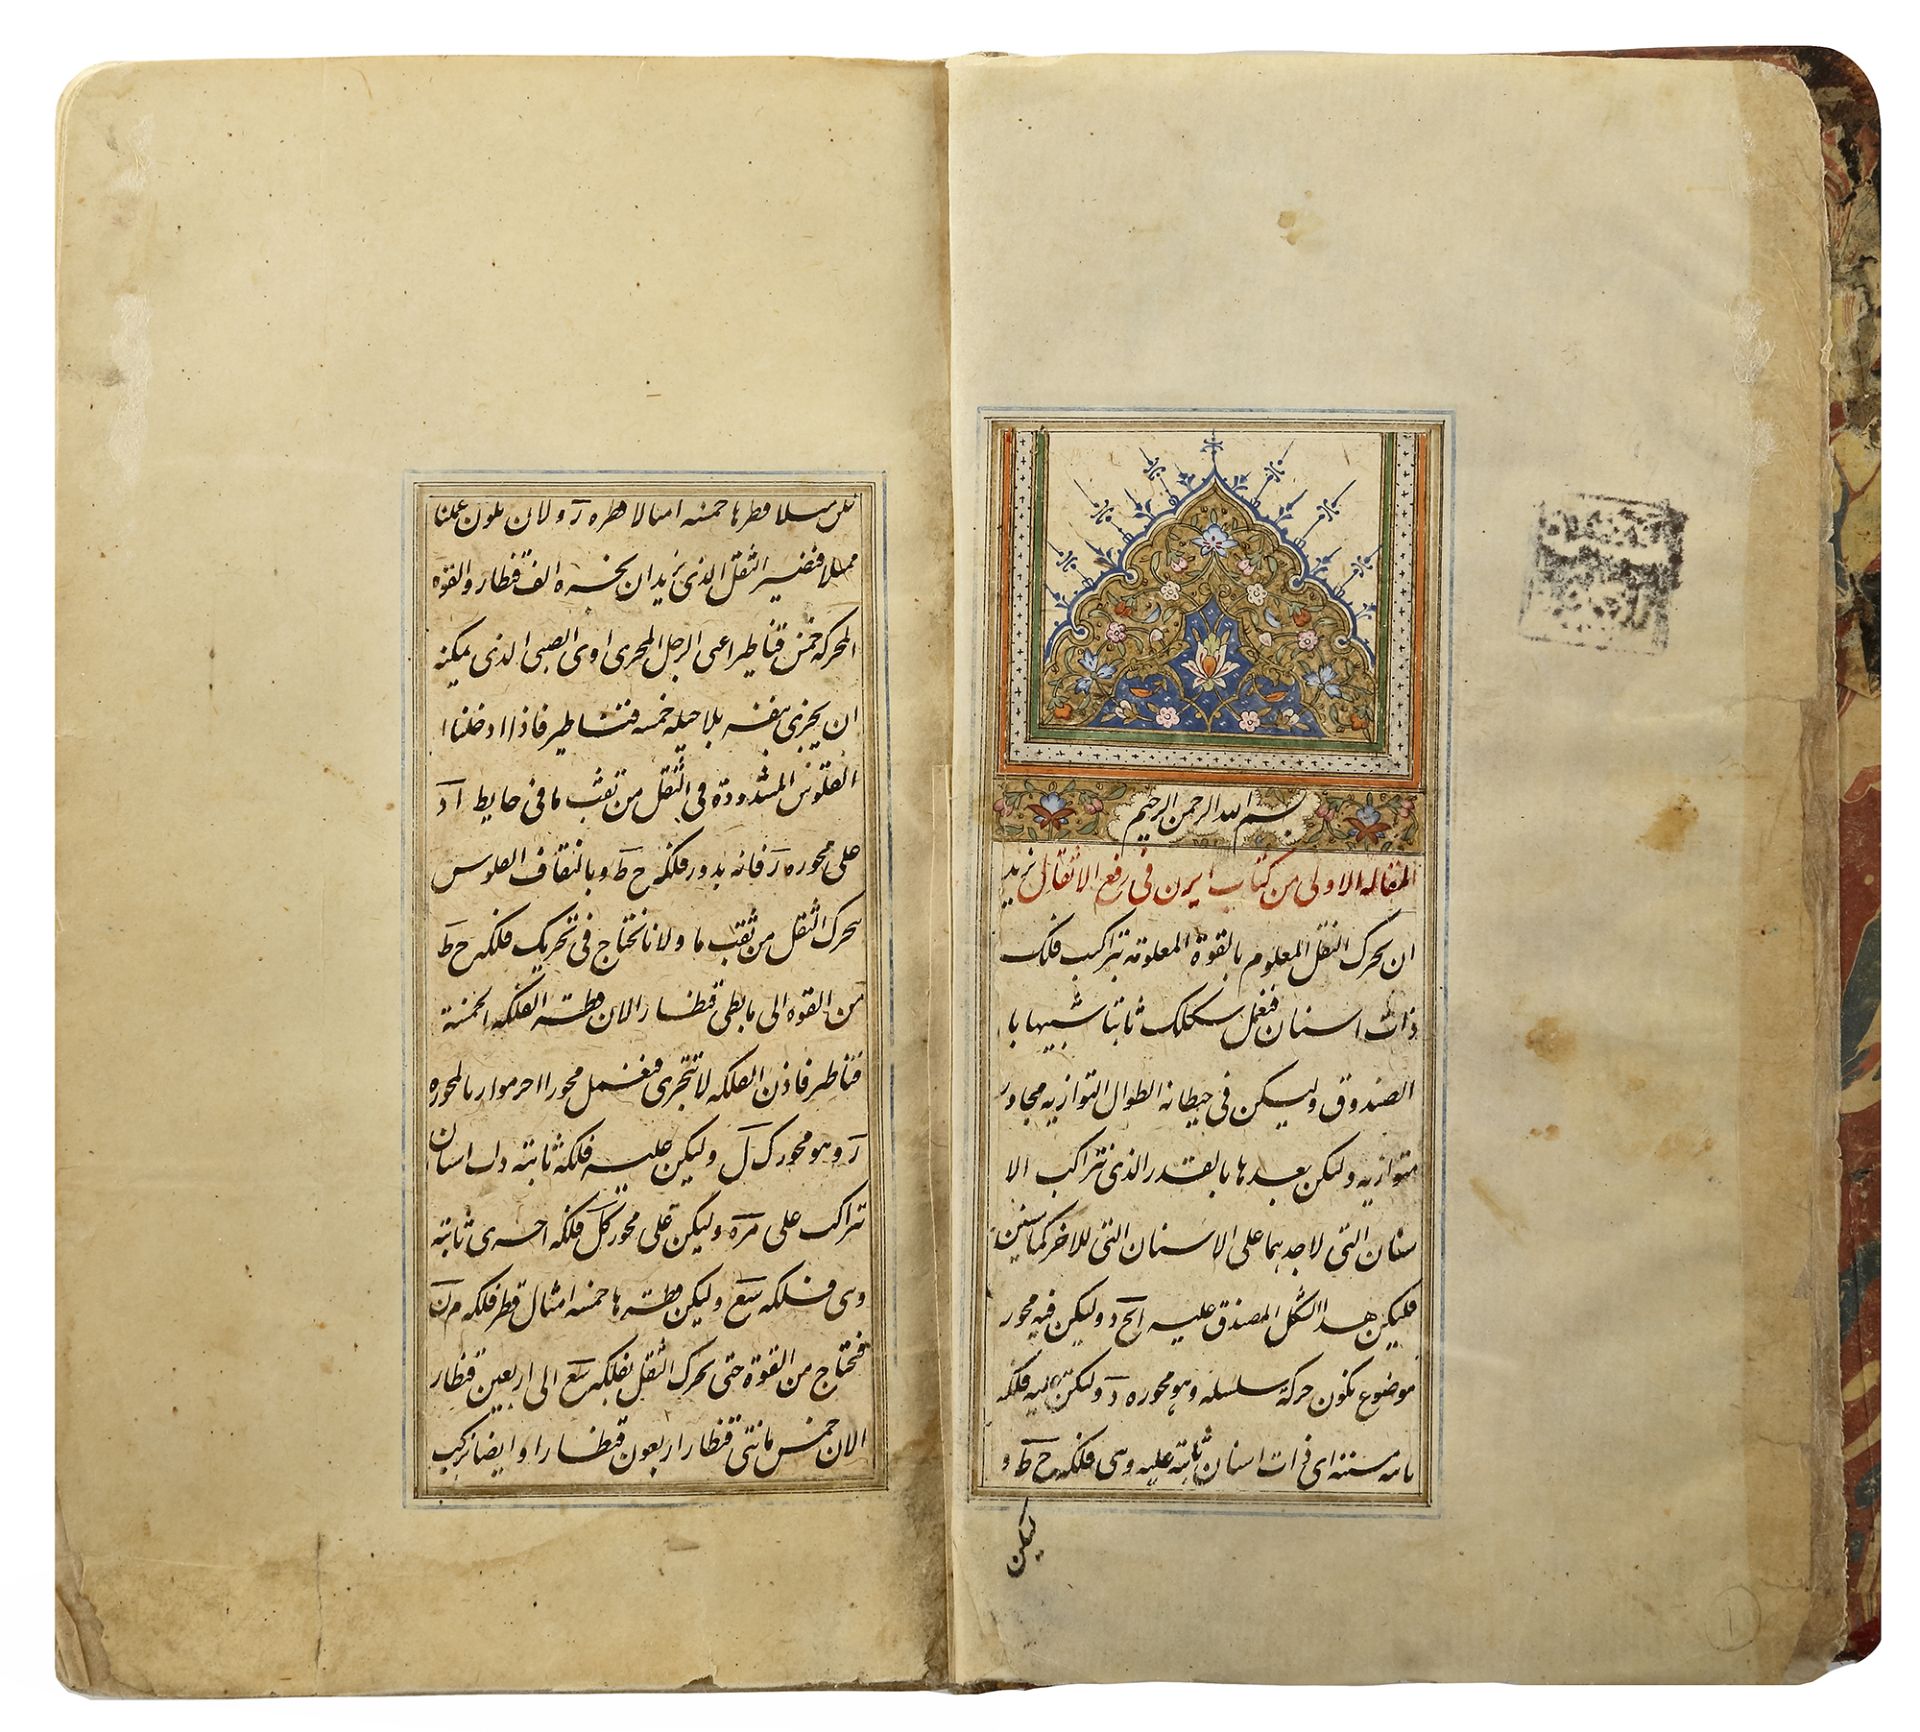 بسم الله الرحمن الرحيم
المقاله الاولى من كتاب ايرن فى رفع الاثقال نريد
ان نحرك الثقل المعلوم بالقوة المعلومه بتراكب فلك
ذات اسنان فنعمل شكلا ثابتا شبيها با
الصندوق وليكن فى حيطانه الطوال المتوازيه محاور
متوازيه وليكن بعدها بالقدر الذى تتراكب الا
سنان التى لاحديهما على الاسنان التى للاخر كما سنبين
فليكن هذا الشكل المصندق عليه ابح د وليكن فيه محور
موضوع تكون حركة سلسله وهو محوره د وليكن عليه فلكه
مسننه اى ذات اسنان ثابته عليه وهى فلكه ح ط و
ليكن
مثلا فنصير الثقل الذى نريد ان نحركه الف قنطار والقوه
المحركه خمس قناطير اعنى الرجل المحرك اوى الصبى الذى يمكنه
ان يحرك بنفسه بلا حيله خمسه قناطير فاذا ادخلنا ا
القلوس المشدودة فى الثقل من ثقب ما فى حايط اد
على محوره ر فانه يدور فلكه ح ط وبالتفاف القلوس
يتحرك الثقل من ثقب ما ولانا نحتاج فى تحريك فلكه ح ط
من القوه الى مايتى قنطار لان قطر الفلكه الخمسة
قناطير فاذن الفلكه لا تتحرك فنعمل محورا اخر موازيا لمحوره
ر وهو محور ك ل وليكن عليه فلكه ثابته ذات اسنان
تتراكب على م ره وليكن على محور ك ل فلكه اخرى ثابته
وهى فلكه سع وليكن قطرها خمسه امثال قطر فلكه م ن
فنحتاج من القوة حتى نحرك الثقل بفلكه سع الى اربعين قنطار
لان خمس مائتى قنطار اربعون قنطارا وايضا نركب